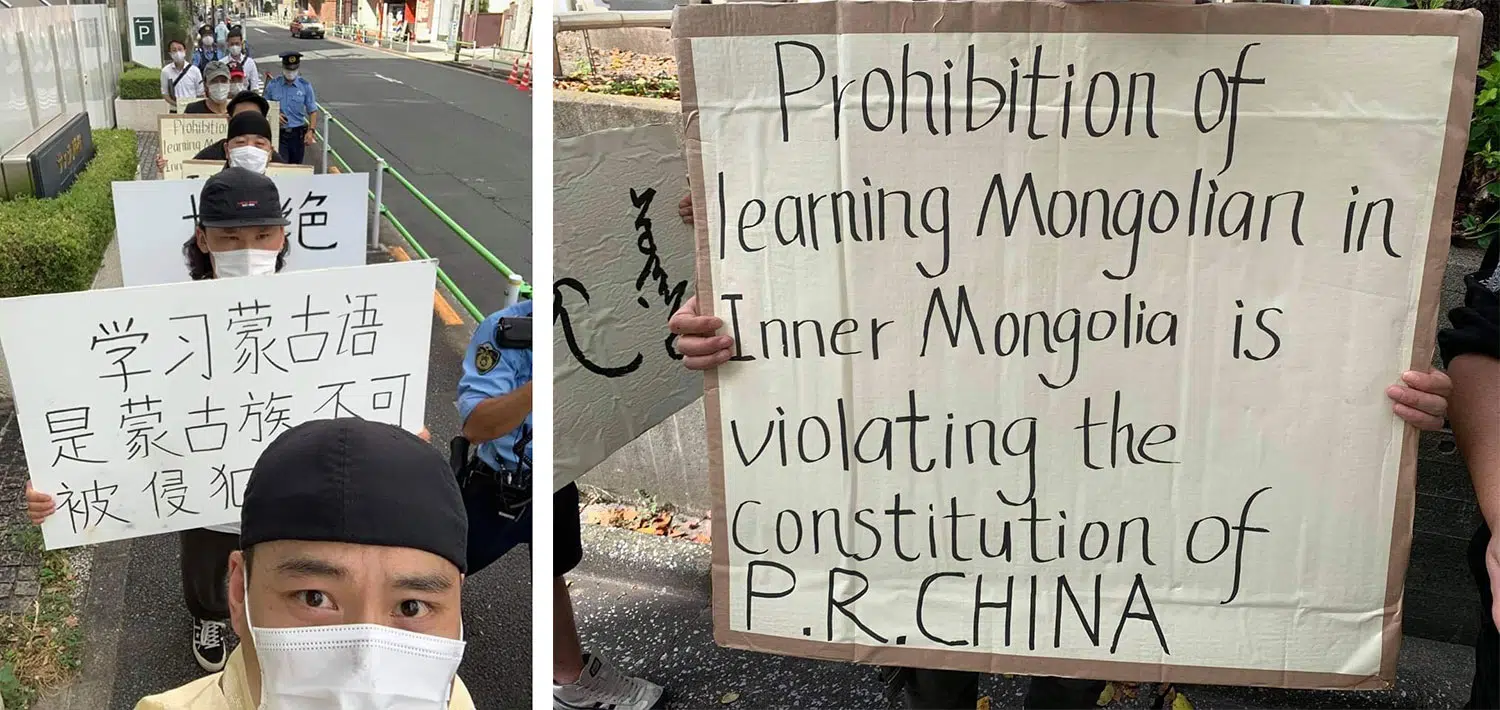 P
Prohibition
learning M
Inn
绝
学习蒙古语
是蒙古族不可
被侵犯
Prohibition of
learning Mongolian in
Inner Mongolia is
violating the
constitution of
P.R.CHINA